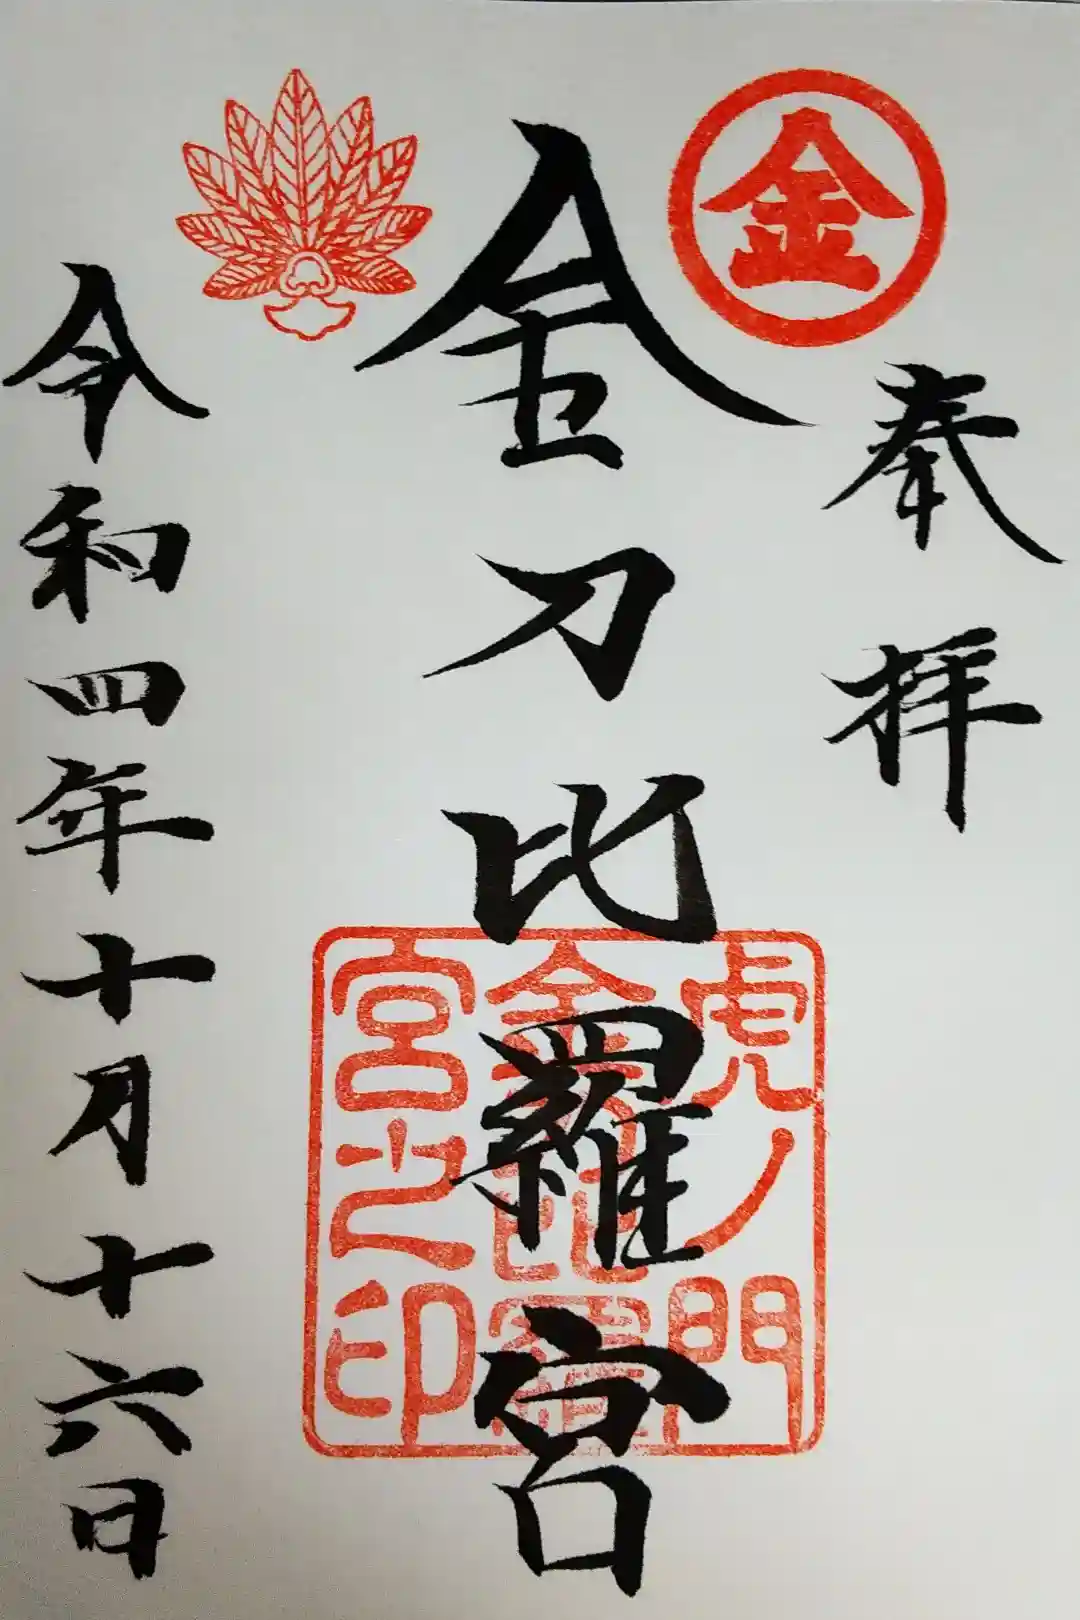 金
奉拝
金刀比羅宮
虎ノ門
金刀比羅
宮之印
令和四年十月十六日